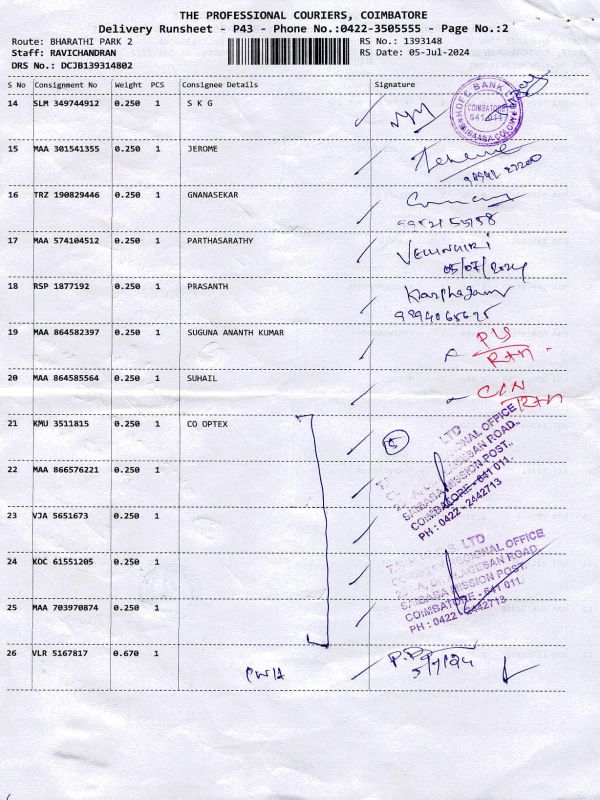 THE PROFESSIONAL COURIERS, COIMBATORE
Delivery Runsheet - P43 - Phone No.:0422-3505555 - Page No.:2
Route: BHARATHI PARK 2 RS No.: 1393148
Staff: RAVICHANDRAN RS Date: 05-Jul-2024
DRS No.: DCJB139314802
S No Consignment No Weight PCS Consignee Details Signature
14 SLM 349744912 0.250 1 S K G
HDFC BANK
COIMBATORE
641 011
15 MAA 301541355 0.250 1 JEROME
Jerome
16 TRZ 190829446 0.250 1 GNANASEKAR
17 MAA 574104512 0.250 1 PARTHASARATHY
05/07/2024
18 RSP 1877192 0.250 1 PRASANTH
19 MAA 864582397 0.250 1 SUGUNA ANANTH KUMAR
Rtn
20 MAA 864585564 0.250 1 SUHAIL
Rtn
21 KMU 3511815 0.250 1 CO OPTEX
5
LTD
REGIONAL OFFICE
ROAD,
SAIBABA MISSION POST,
COIMBATORE - 641 011.
PH : 0422 - 2442713
22 MAA 866576221 0.250 1
23 VJA 5651673 0.250 1
24 KOC 61551205 0.250 1
LTD
REGIONAL OFFICE
ROAD,
SAIBABA MISSION POST,
COIMBATORE - 641 011.
PH : 0422 - 2442713
25 MAA 703970874 0.250 1
26 VLR 5167817 0.670 1
5/7/24